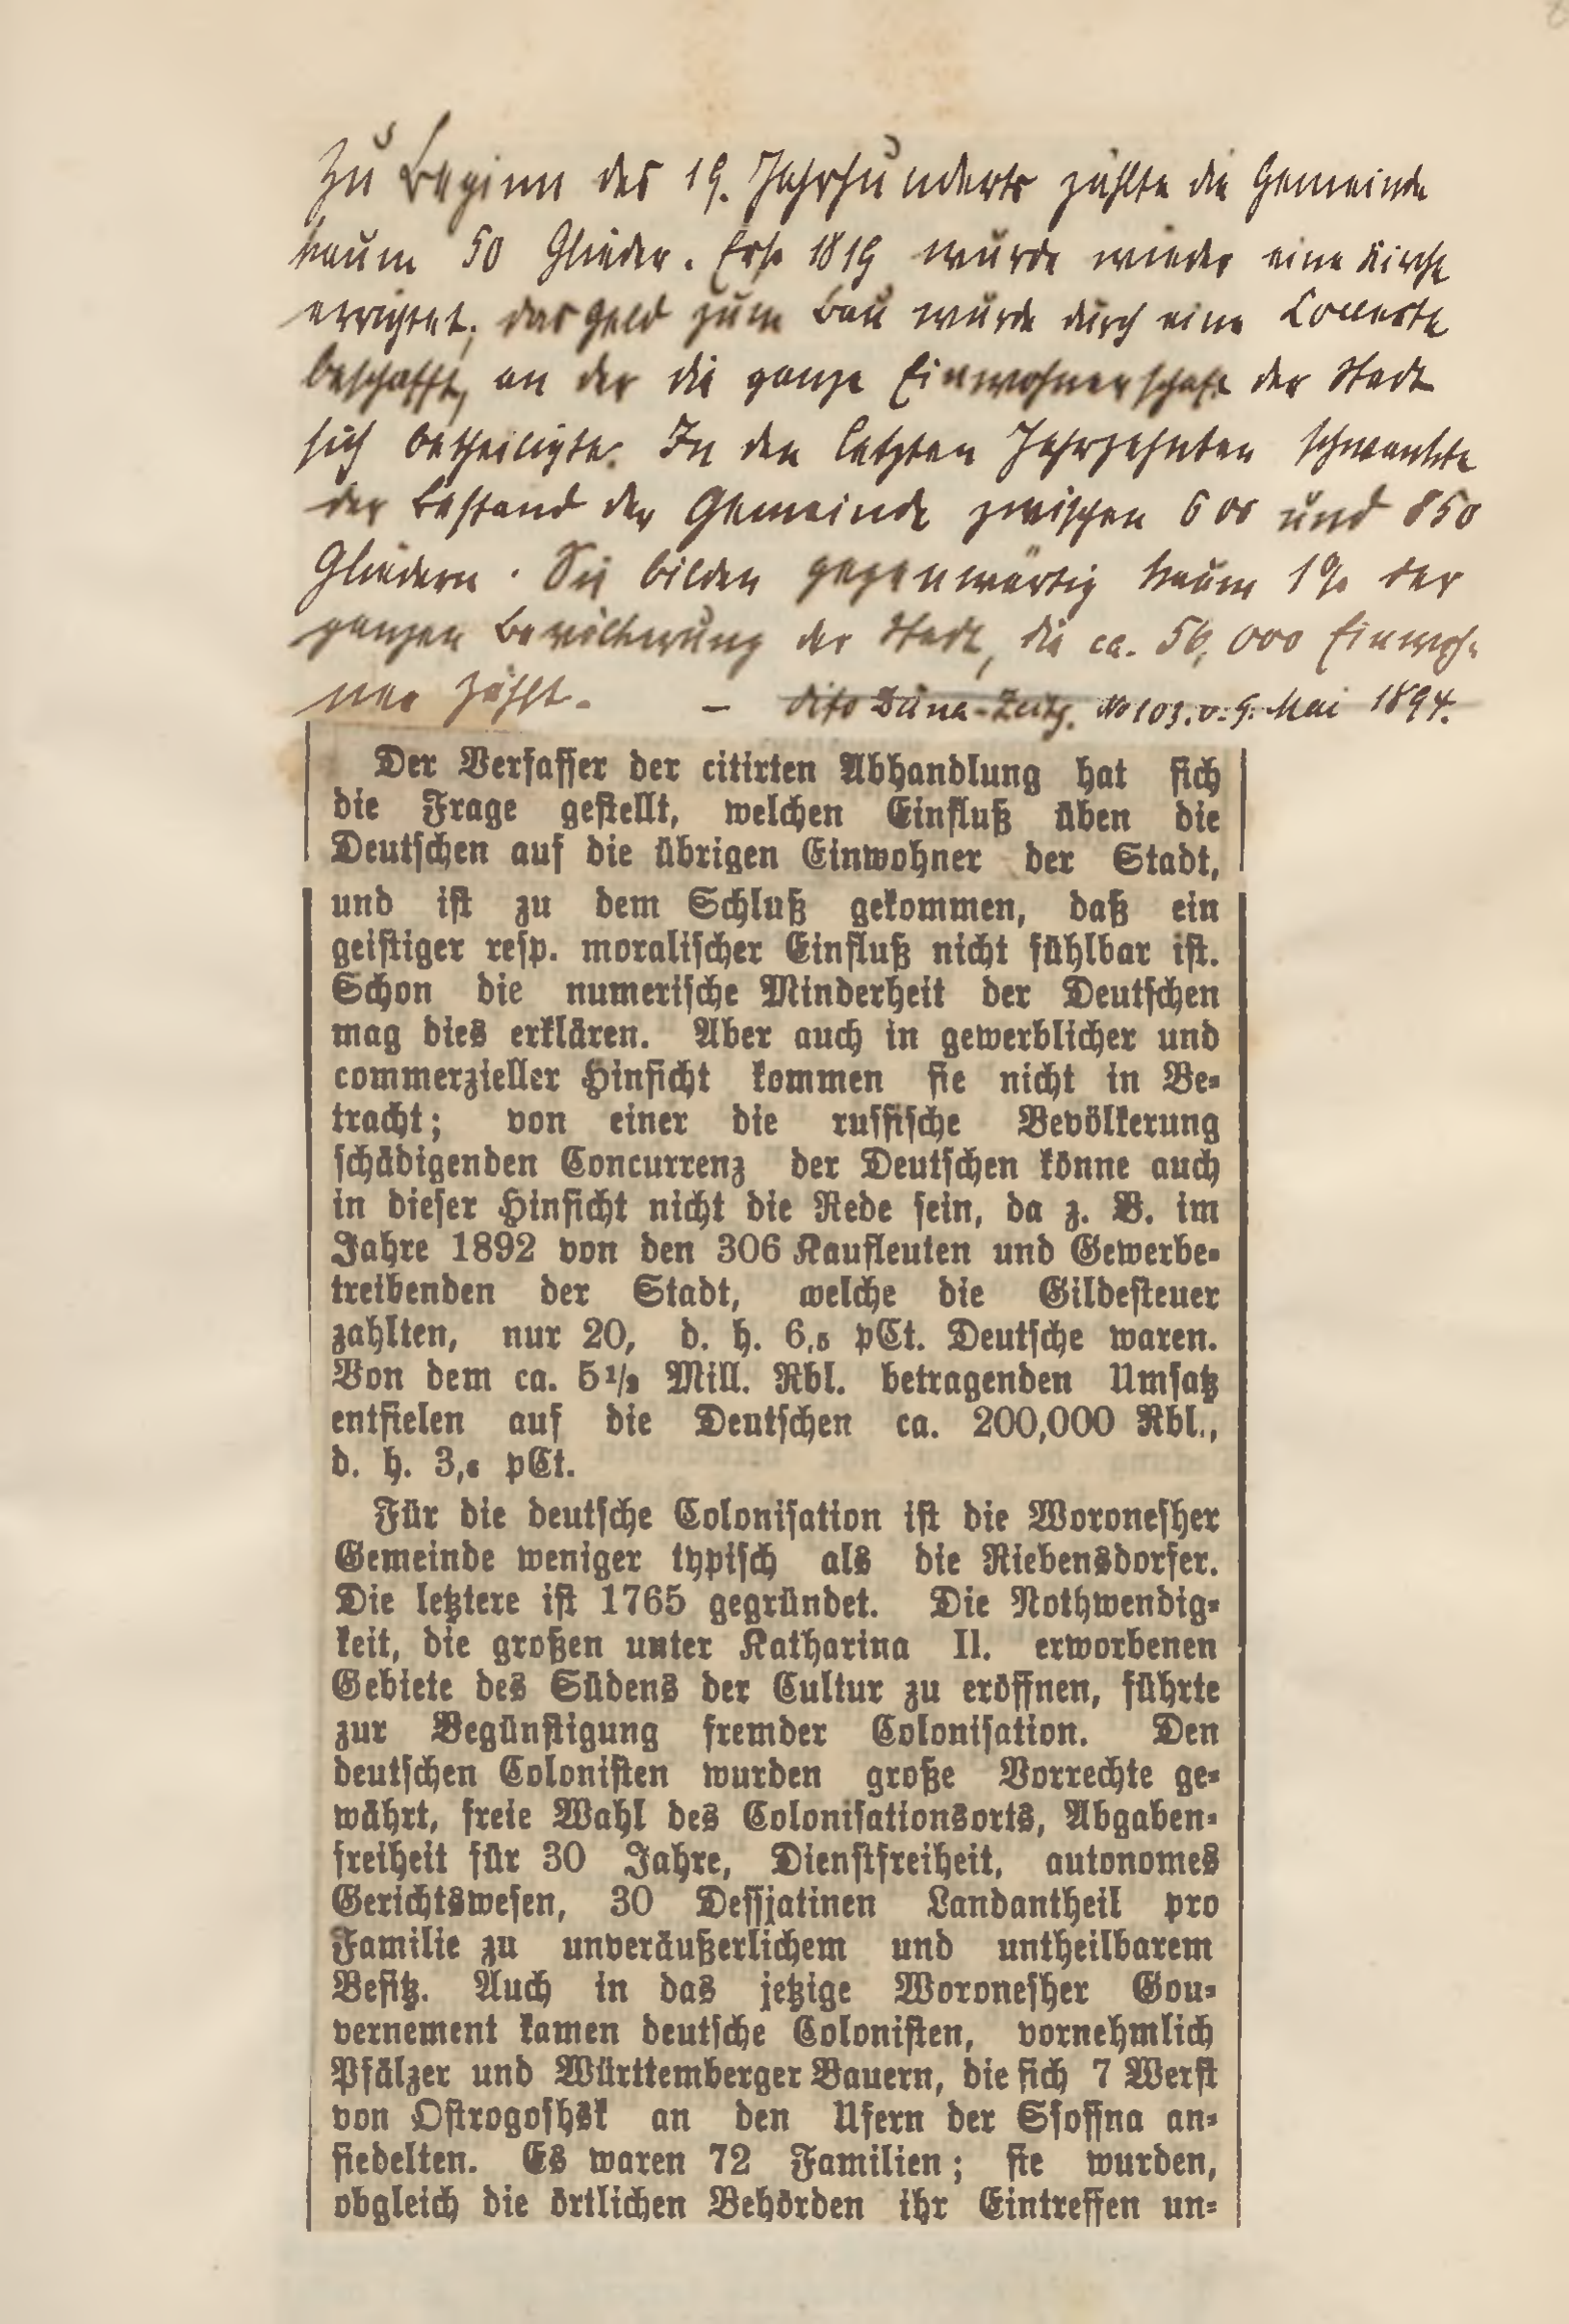 Zu Beginn des 19. Jahrhunderts zählte die Gemeinde
kaum 50 Glieder. Erst 1819 wurde wieder eine Kirche
errichtet; das Geld zum Bau wurde durch eine Collecte
beschafft, an der die ganze Einwohnerschaft der Stadt
sich betheiligte. In den letzten Jahrzehnten schwankte
der Bestand der Gemeinde zwischen 600 und 850
Gliedern. Sie bilden gegenwärtig kaum 1% der
ganzen Bevölkerung der Stadt, die ca. 56,000 Einwoh-
ner zählt. — dito Düna-Zeitg. No 103. v. 9. Mai 1894.
Der Verfasser der citirten Abhandlung hat sich
die Frage gestellt, welchen Einfluß üben die
Deutschen auf die übrigen Einwohner der Stadt,
und ist zu dem Schluß gekommen, daß ein
geistiger resp. moralischer Einfluß nicht fühlbar ist.
Schon die numerische Minderheit der Deutschen
mag dies erklären. Aber auch in gewerblicher und
commerzieller Hinsicht kommen sie nicht in Be-
tracht; von einer die russische Bevölkerung
schädigenden Concurrenz der Deutschen könne auch
in dieser Hinsicht nicht die Rede sein, da z. B. im
Jahre 1892 von den 306 Kaufleuten und Gewerbe-
treibenden der Stadt, welche die Gildesteuer
zahlten, nur 20, d. h. 6,5 pCt. Deutsche waren.
Von dem ca. 5½ Mill. Rbl. betragenden Umsatz
entfielen auf die Deutschen ca. 200,000 Rbl.,
d. h. 3,6 pCt.
Für die deutsche Colonisation ist die Woronesher
Gemeinde weniger typisch als die Riebensdorfer.
Die letztere ist 1765 gegründet. Die Nothwendig-
keit, die großen unter Katharina II. erworbenen
Gebiete des Südens der Cultur zu eröffnen, führte
zur Begünstigung fremder Colonisation. Den
deutschen Colonisten wurden große Vorrechte ge-
währt, freie Wahl des Colonisationsorts, Abgaben-
freiheit für 30 Jahre, Dienstfreiheit, autonomes
Gerichtswesen, 30 Dessjatinen Landantheil pro
Familie zu unveräußerlichem und untheilbarem
Besitz. Auch in das jetzige Woronesher Gou-
vernement kamen deutsche Colonisten, vornehmlich
Pfälzer und Württemberger Bauern, die sich 7 Werst
von Ostrogoshsk an den Ufern der Ssossna an-
siedelten. Es waren 72 Familien; sie wurden,
obgleich die örtlichen Behörden ihr Eintreffen un-